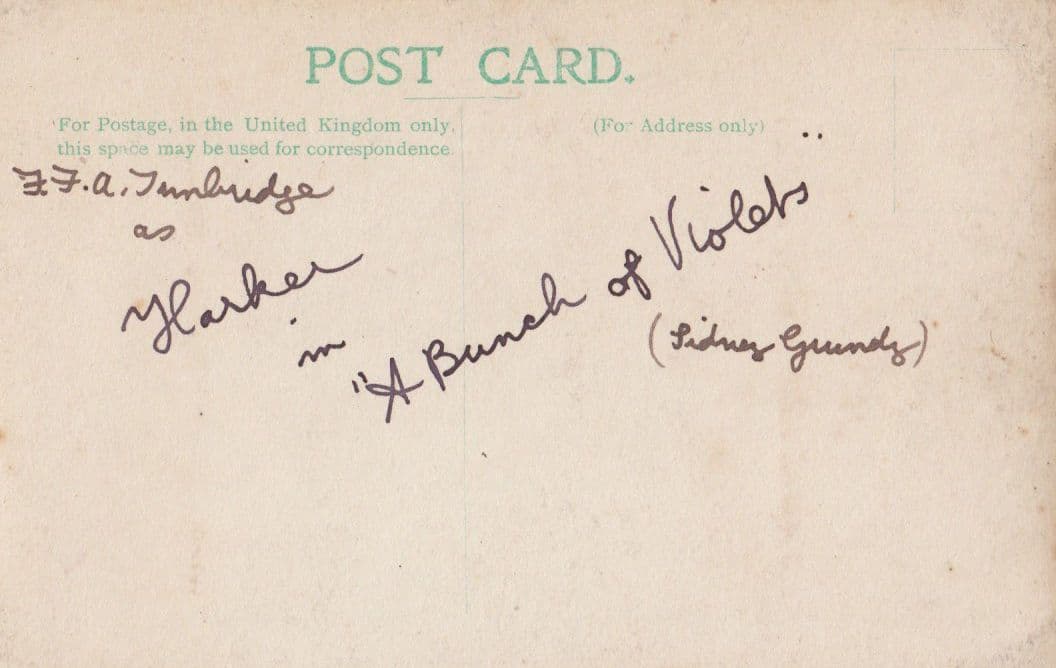 POST CARD.
For Postage, in the United Kingdom only, this space may be used for correspondence.
(For Address only)
F.F.A. Tunbridge
as
Harker
in
"A Bunch of Violets"
(Sidney Grundy)